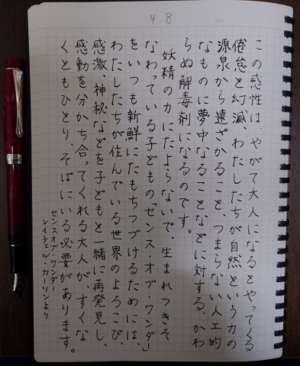 48
この感性は、やがて大人になるとやってくる
倦怠と幻滅、わたしたちが自然という力の
源泉から遠ざかること、つまらない人工的
なものに夢中になることなどに対する、かわ
らぬ解毒剤になるのです。
妖精の力にたよらないで、生まれつきそ
なわっている子どもの「センス・オブ・ワンダー」
をいつも新鮮にたもちつづけるためには、
わたしたちが住んでいる世界のよろこび、
感激、神秘などを子どもと一緒に再発見し、
感動を分かち合ってくれる大人が、すくな
くともひとり、そばにいる必要があります。
センスオブ・ワンダー
レイチェル・カーソンより